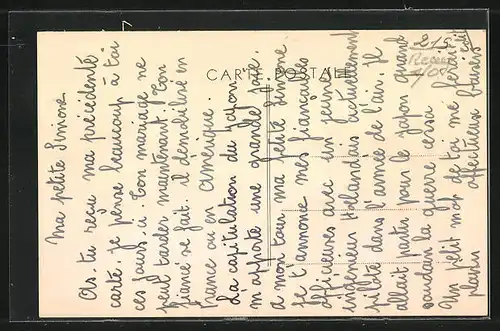 CARTE POSTALE
Ma petite Simone
As-tu reçu ma précédente
carte. Je pense beaucoup à toi
ces jours-ci. Ton mariage ne
peut tarder maintenant. Ton
fiancé se fait-il démobilisé en
France ou en Amérique.
La capitulation du Japon
m'apporte une grande joie.
A mon tour ma petite Simone
je t'annonce mes fiançailles
officieuses avec un jeune
ingénieur Hollandais actuellement
pilote dans l'armée de l'air. Il
allait partir pour le Japon quand
soudain la guerre cessa
Un petit mot de toi me ferait
plaisir affectueux baisers